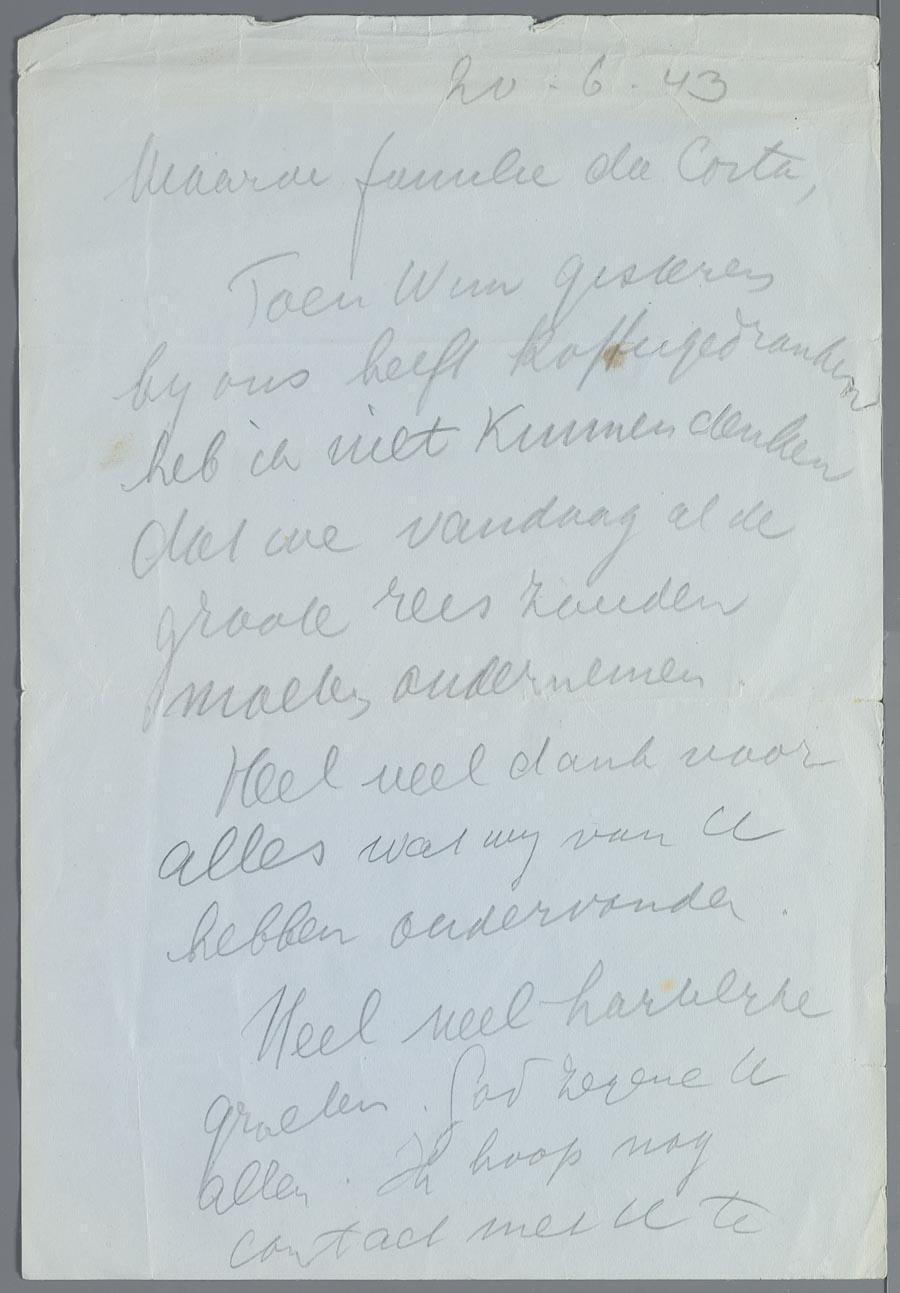 20-6-43
Waarde familie da Costa,
Toen Wim gisteren
by ons heeft koffiegedronken
heb ik niet kunnen denken
dat we vandaag al de
groote reis zouden
moeten ondernemen.
Heel veel dank voor
alles wat wy van U
hebben ondervonden.
Heel veel hartelyke
groeten. God zegene U
allen. Ik hoop nog
contact met U te